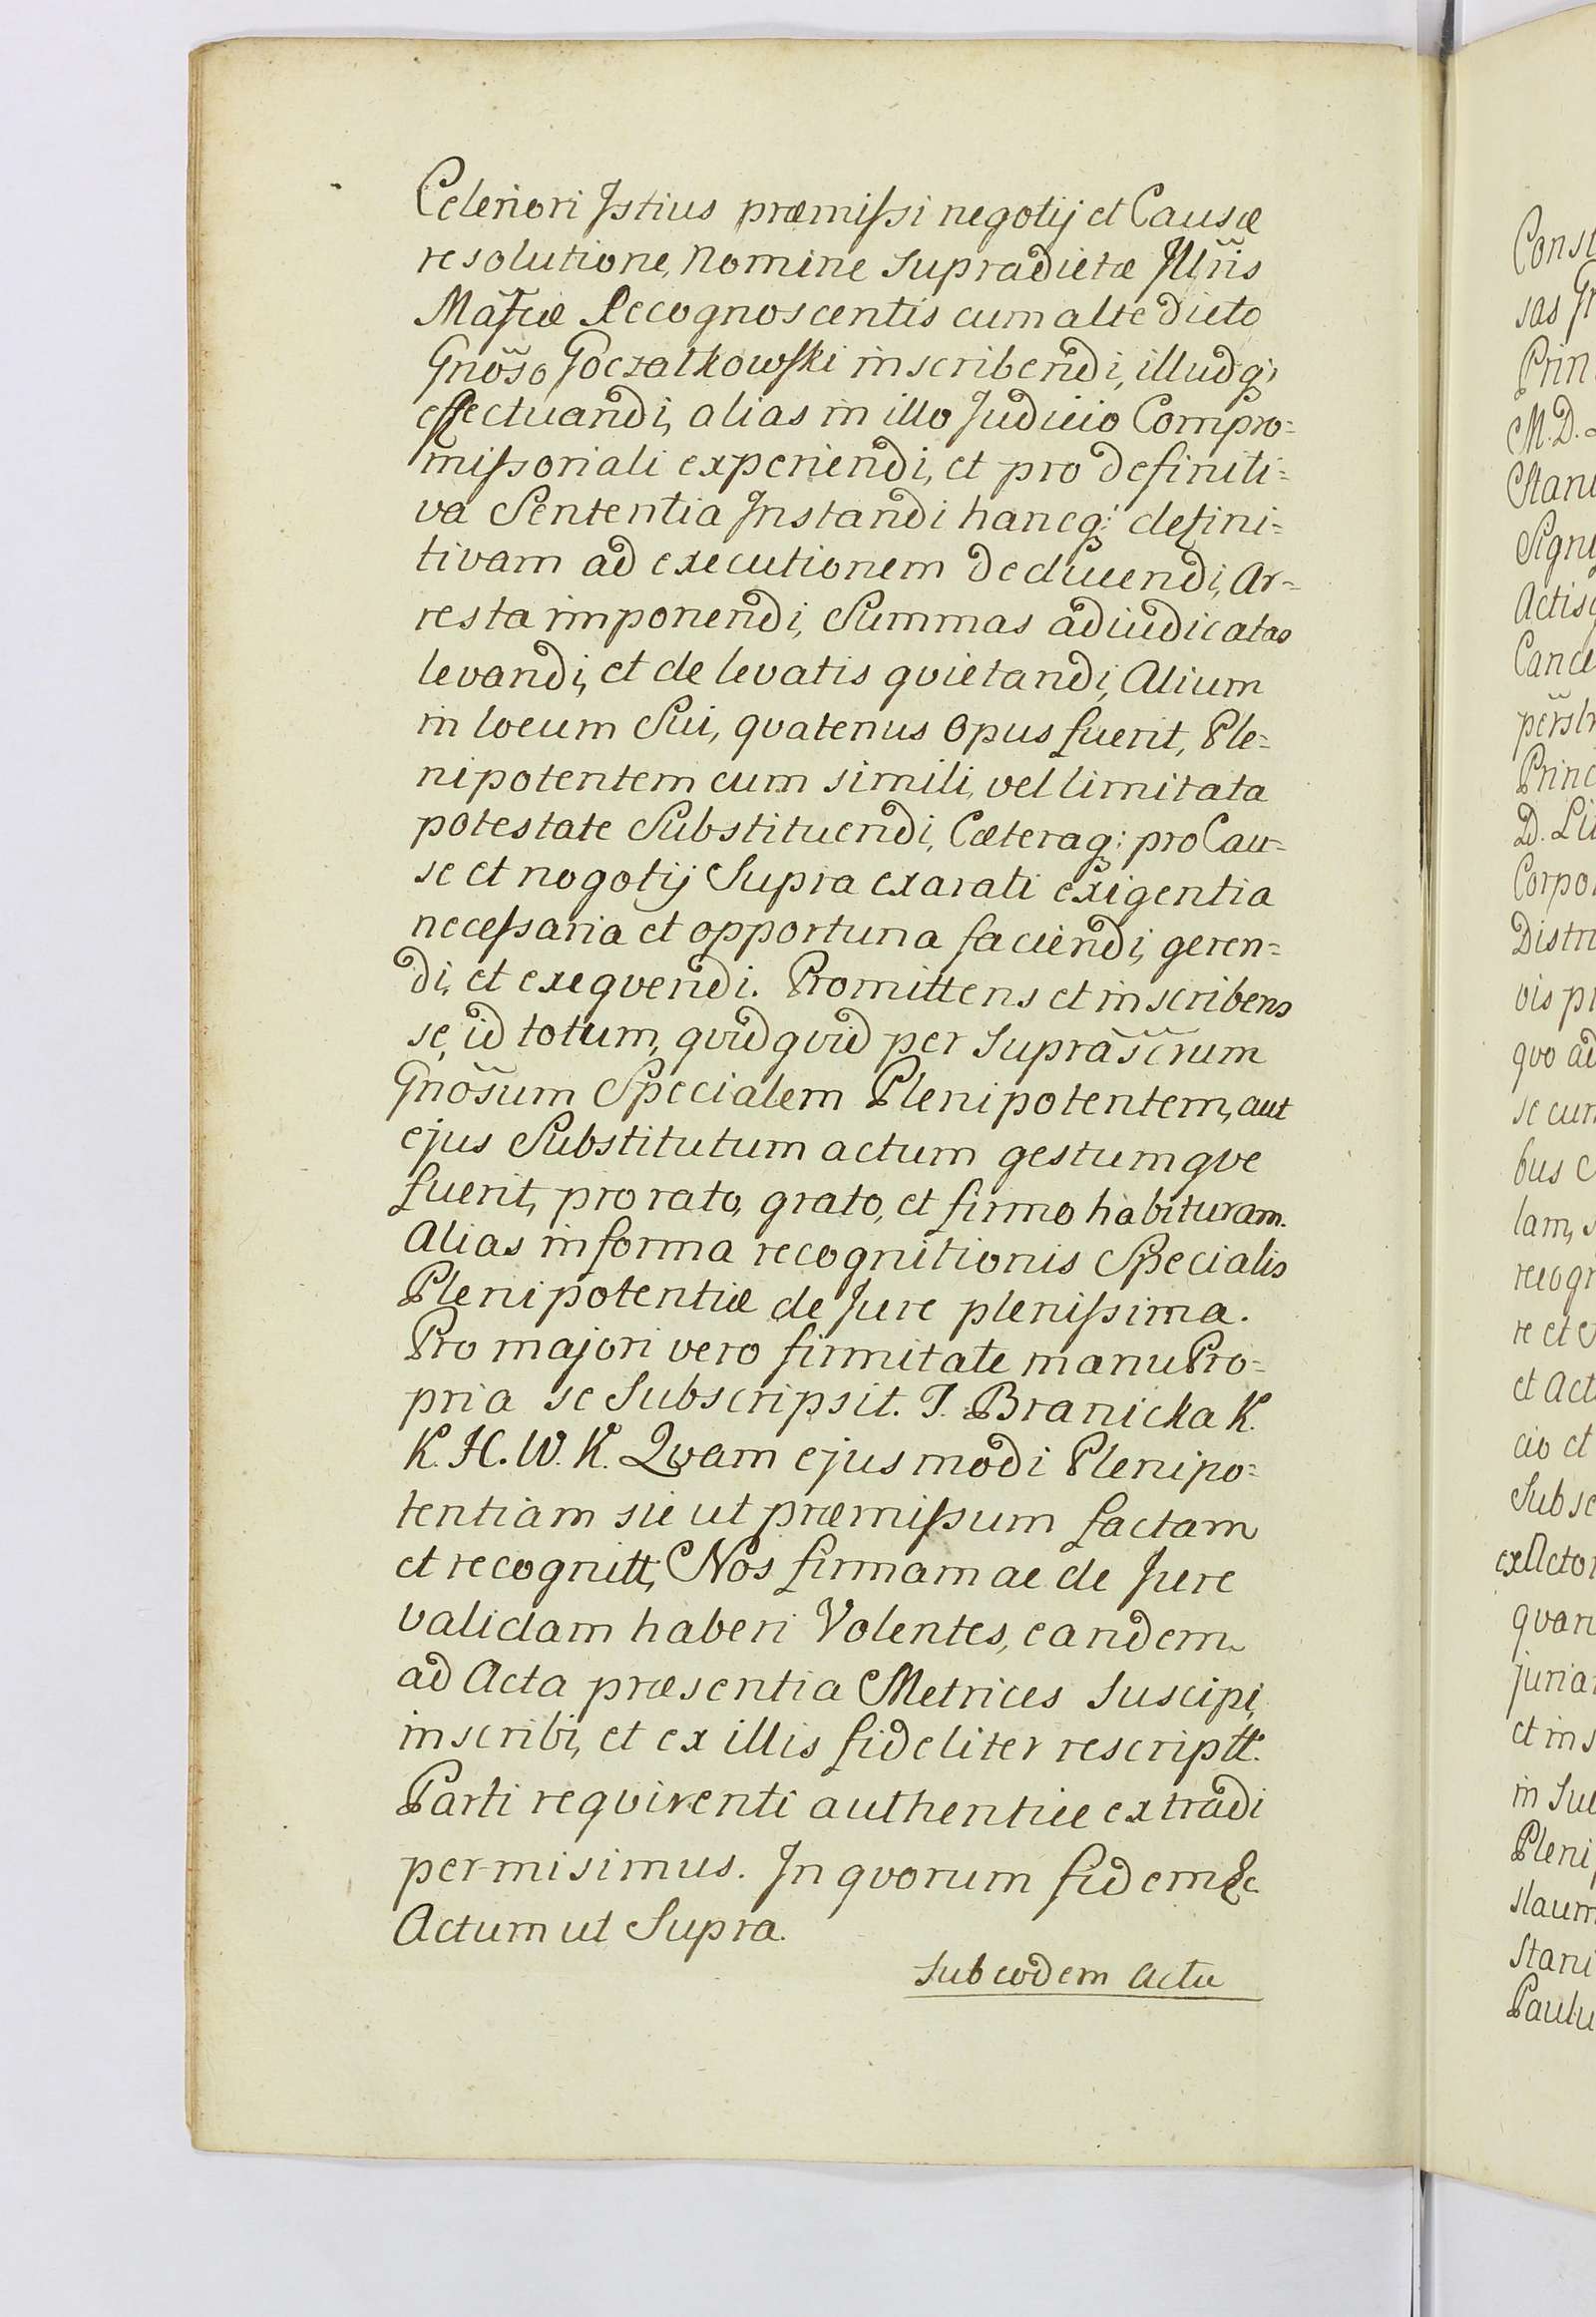 Celeriori Istius præmissi negotij et Causæ
resolutione, Nomine supradictæ Illñis
Mãfcæ Recognoscentis cum alte dicto
Gnõso Goczałkowski inscribendi, illudq;
effectuandi, alias in illo Judicio Compro=
missoriali experiendi, et pro definiti=
va Sententia Instandi hancq; defini=
tivam ad executionem deducendi, Ar=
resta imponendi, Summas adiudicatas
levandi, et de levatis quietandi, Alium
in locum Sui, quatenus Opus fuerit, Ple=
nipotentem cum simili, vel limitata
potestate Substituendi, Cæteraq; pro Cau=
se et nogotij Supra exarati exigentia
necessaria et opportuna faciendi, geren=
di, et exequendi. Promittens et inscribens
se, id totum, quidquid per suprãscrum
Gnõsum Specialem Plenipotentem, aut
ejus Substitutum actum gestumque
fuerit, pro rato, grato, et firmo habituram.
Alias in forma recognitionis Specialis
Plenipotentiæ de Jure plenissima.
Pro majori vero firmitate manu Pro=
pria se Subscripsit. I. Branicka K.
K. H. W. K. Quam ejusmodi Plenipo=
tentiam sic ut præmissum factam
et recognitt, Nos firmam ac de Jure
validam haberi Volentes, eandem
ad Acta præsentia Metrices Suscipi,
inscribi, et ex illis fideliter rescriptt.
Parti requirenti authentice extradi
permisimus. In quorum fidem &c
Actum ut Supra.
Sub eodem Actu
Const
sas Gr
Prin
M. D.
Stani
Sign
Actisq
Cance
Princ
D. Li
Corpo
Distri
vis pr
quo ad
se cum
bus C
lam, s
recogn
re et
et Act
cio et
Subsc
ex Actor
quan
juria
et ins
in Sue
Pleni
slaum
Stani
Paulu